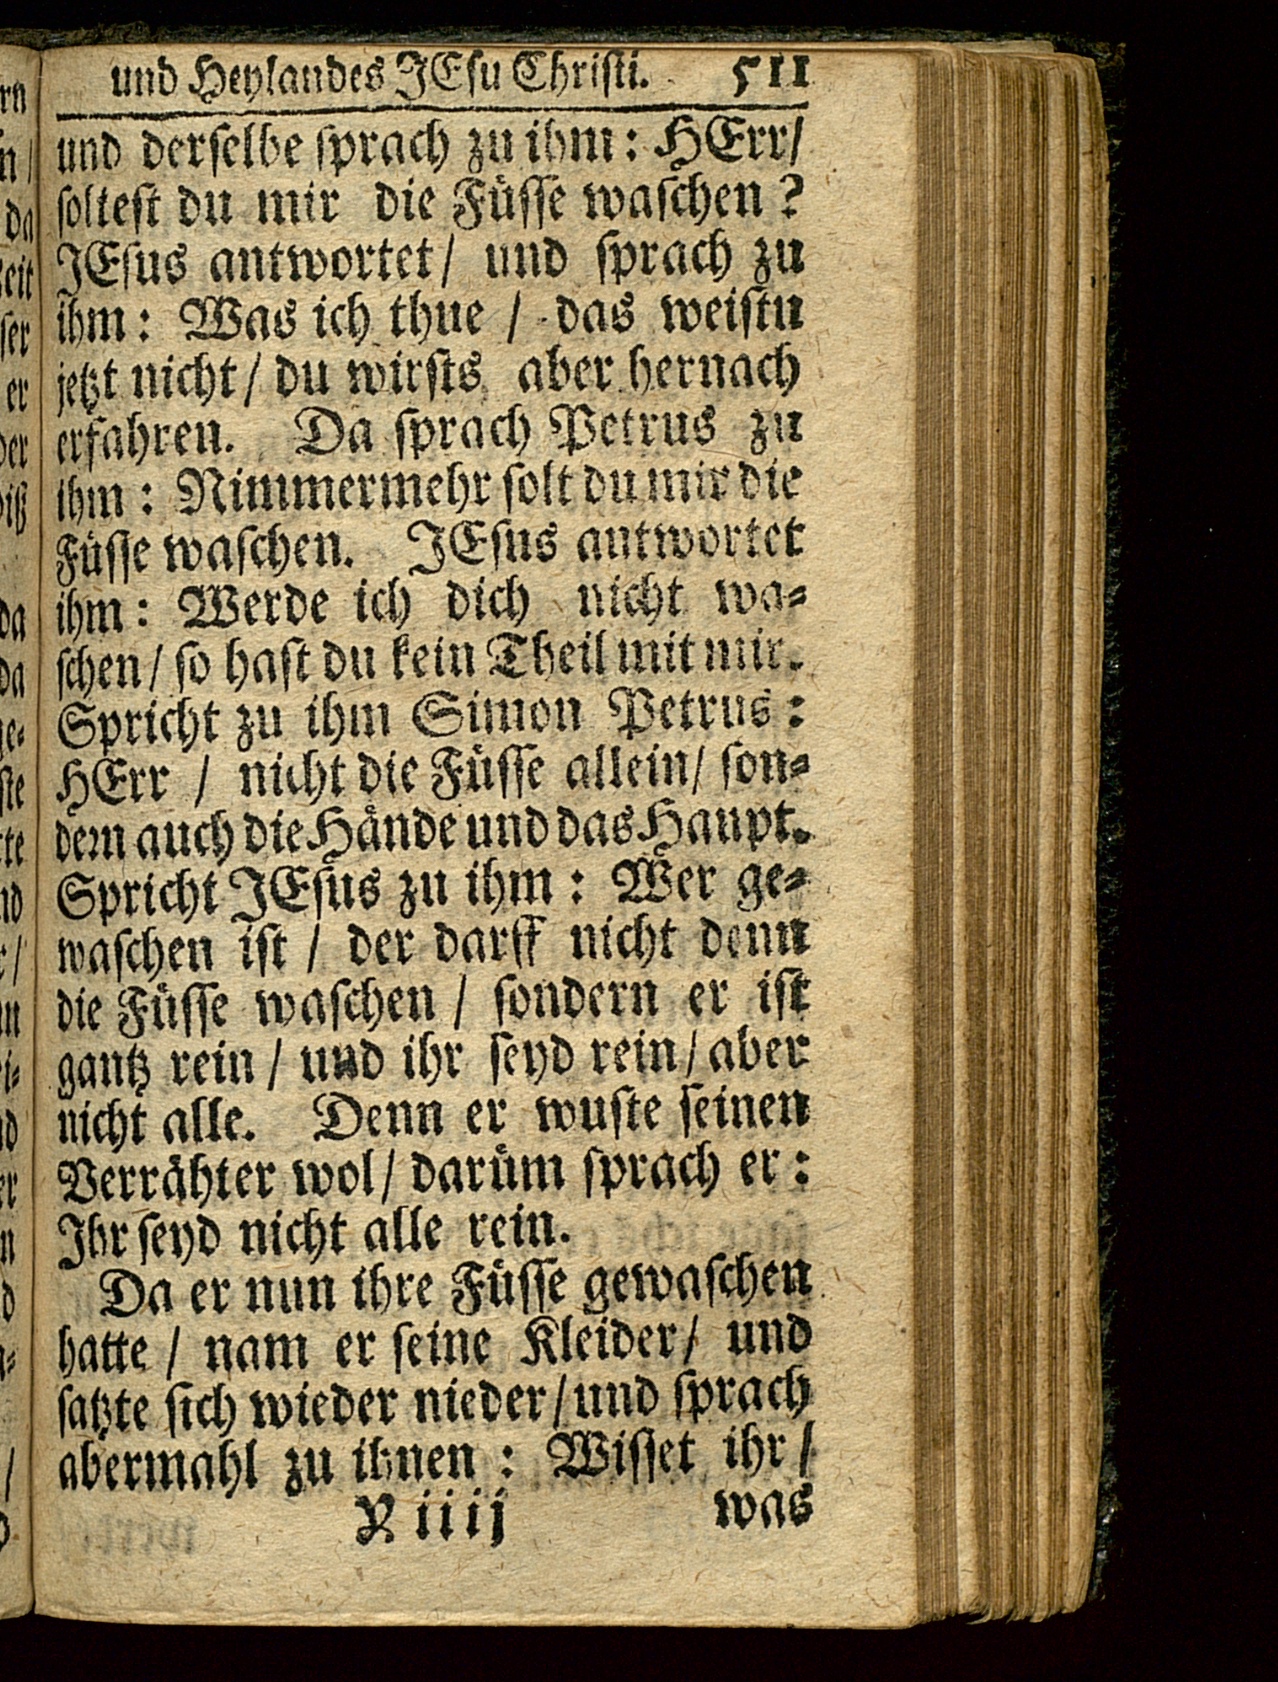 und Heylandes JEsu Christi. 511
und derselbe sprach zu ihm: HErr/
soltest du mir die Füsse waschen?
JEsus antwortet/ und sprach zu
ihm: Was ich thue / das weistu
jetzt nicht/ du wirsts aber hernach
erfahren. Da sprach Petrus zu
ihm: Nimmermehr solt du mir die
Füsse waschen. JEsus antwortet
ihm: Werde ich dich nicht wa-
schen/ so hast du kein Theil mit mir.
Spricht zu ihm Simon Petrus:
HErr / nicht die Füsse allein/ son-
dern auch die Hände und das Haupt.
Spricht JEsus zu ihm: Wer ge-
waschen ist / der darff nicht denn
die Füsse waschen / sondern er ist
gantz rein / und ihr seyd rein/ aber
nicht alle. Denn er wuste seinen
Verrähter wol/ darüm sprach er:
Ihr seyd nicht alle rein.
Da er nun ihre Füsse gewaschen
hatte / nam er seine Kleider/ und
satzte sich wieder nieder/ und sprach
abermahl zu ihnen: Wisset ihr /
Y iiij was